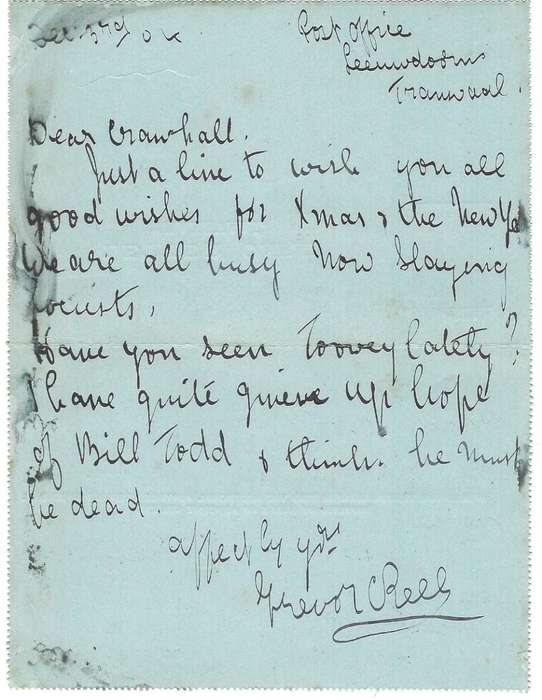 Dec 3rd 04
Post Office
Leeuwdoorns
Transvaal.
Dear Crawhall.
Just a line to wish you all
good wishes for Xmas & the New Ye
We are all busy now slaying
locusts,
Have you seen Toovey lately?
I have quite given up hope
of Bill Todd & think he must
be dead.
affectly yrs
Trevor C